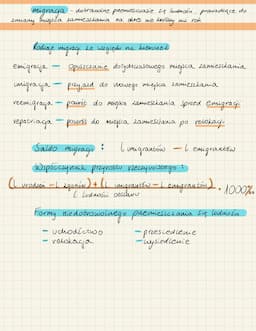 migracja - dobrowolne przemieszczanie się ludności, prowadzące do
zmiany miejsca zamieszkania na okres nie krótszy niż rok
Rodzaje migracji ze względu na kierunek
emigracja - opuszczenie dotychczasowego miejsca zamieszkania
imigracja - przyjazd do nowego miejsca zamieszkania
reemigracja - powrót do miejsca zamieszkania sprzed emigracji
repatriacja - powrót do miejsca zamieszkania po relokacji
Saldo migracji : L imigrantów - L emigrantów
Współczynnik przyrostu rzeczywistego :
(L urodzeń - L zgonów) + (L imigrantów - L emigrantów) · 1000‰
L ludności obszaru
Formy niedobrowolnego przemieszczania się ludności
- uchodźctwo - przesiedlenie
- relokacja - wysiedlenie